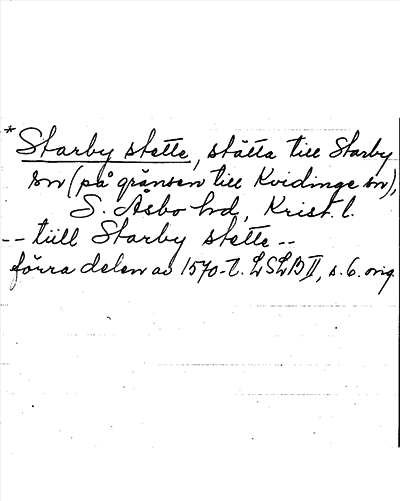 * Starby stette, stätta till Starby
sn (på gränsen till Kvidinge sn),
S. Åsbo hd, Krist. l.
-- tiill Starby stette --
förra delen av 1570-t. LSLB II, s. 6. orig.